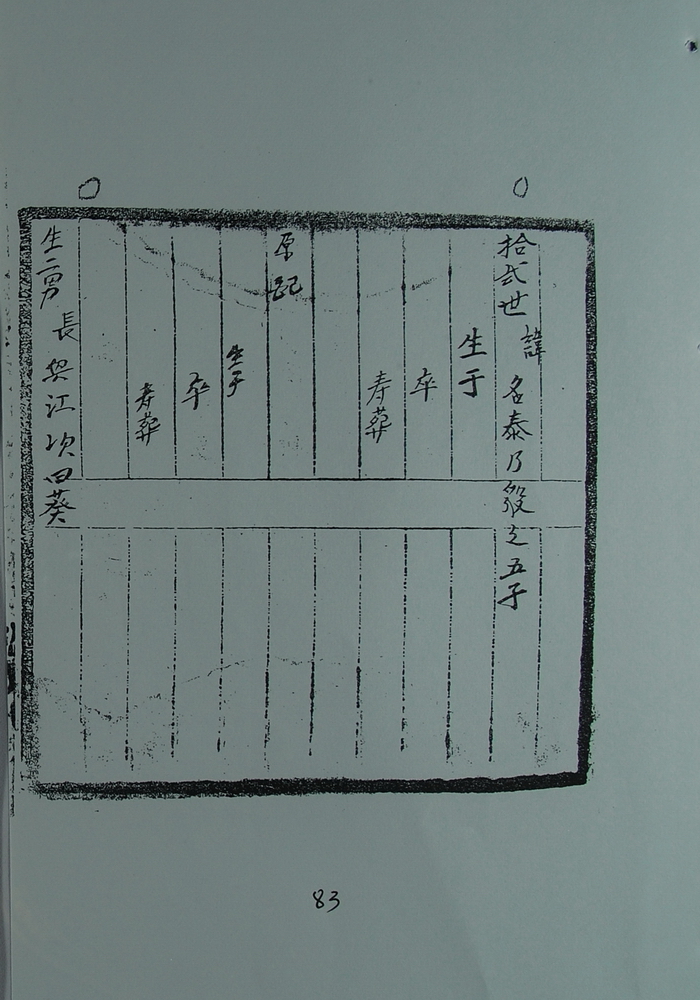 拾弍世 諱 名泰乃毅之五子
生于
卒
寿葬
原配
生于
卒
寿葬
生二男 長 江次田葵
83